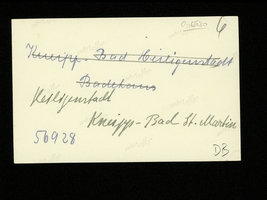 6
Kneipp-Bad Heiligenstadt
Badehaus
Heiligenstadt
Kneipp-Bad St. Martin
56928
DB